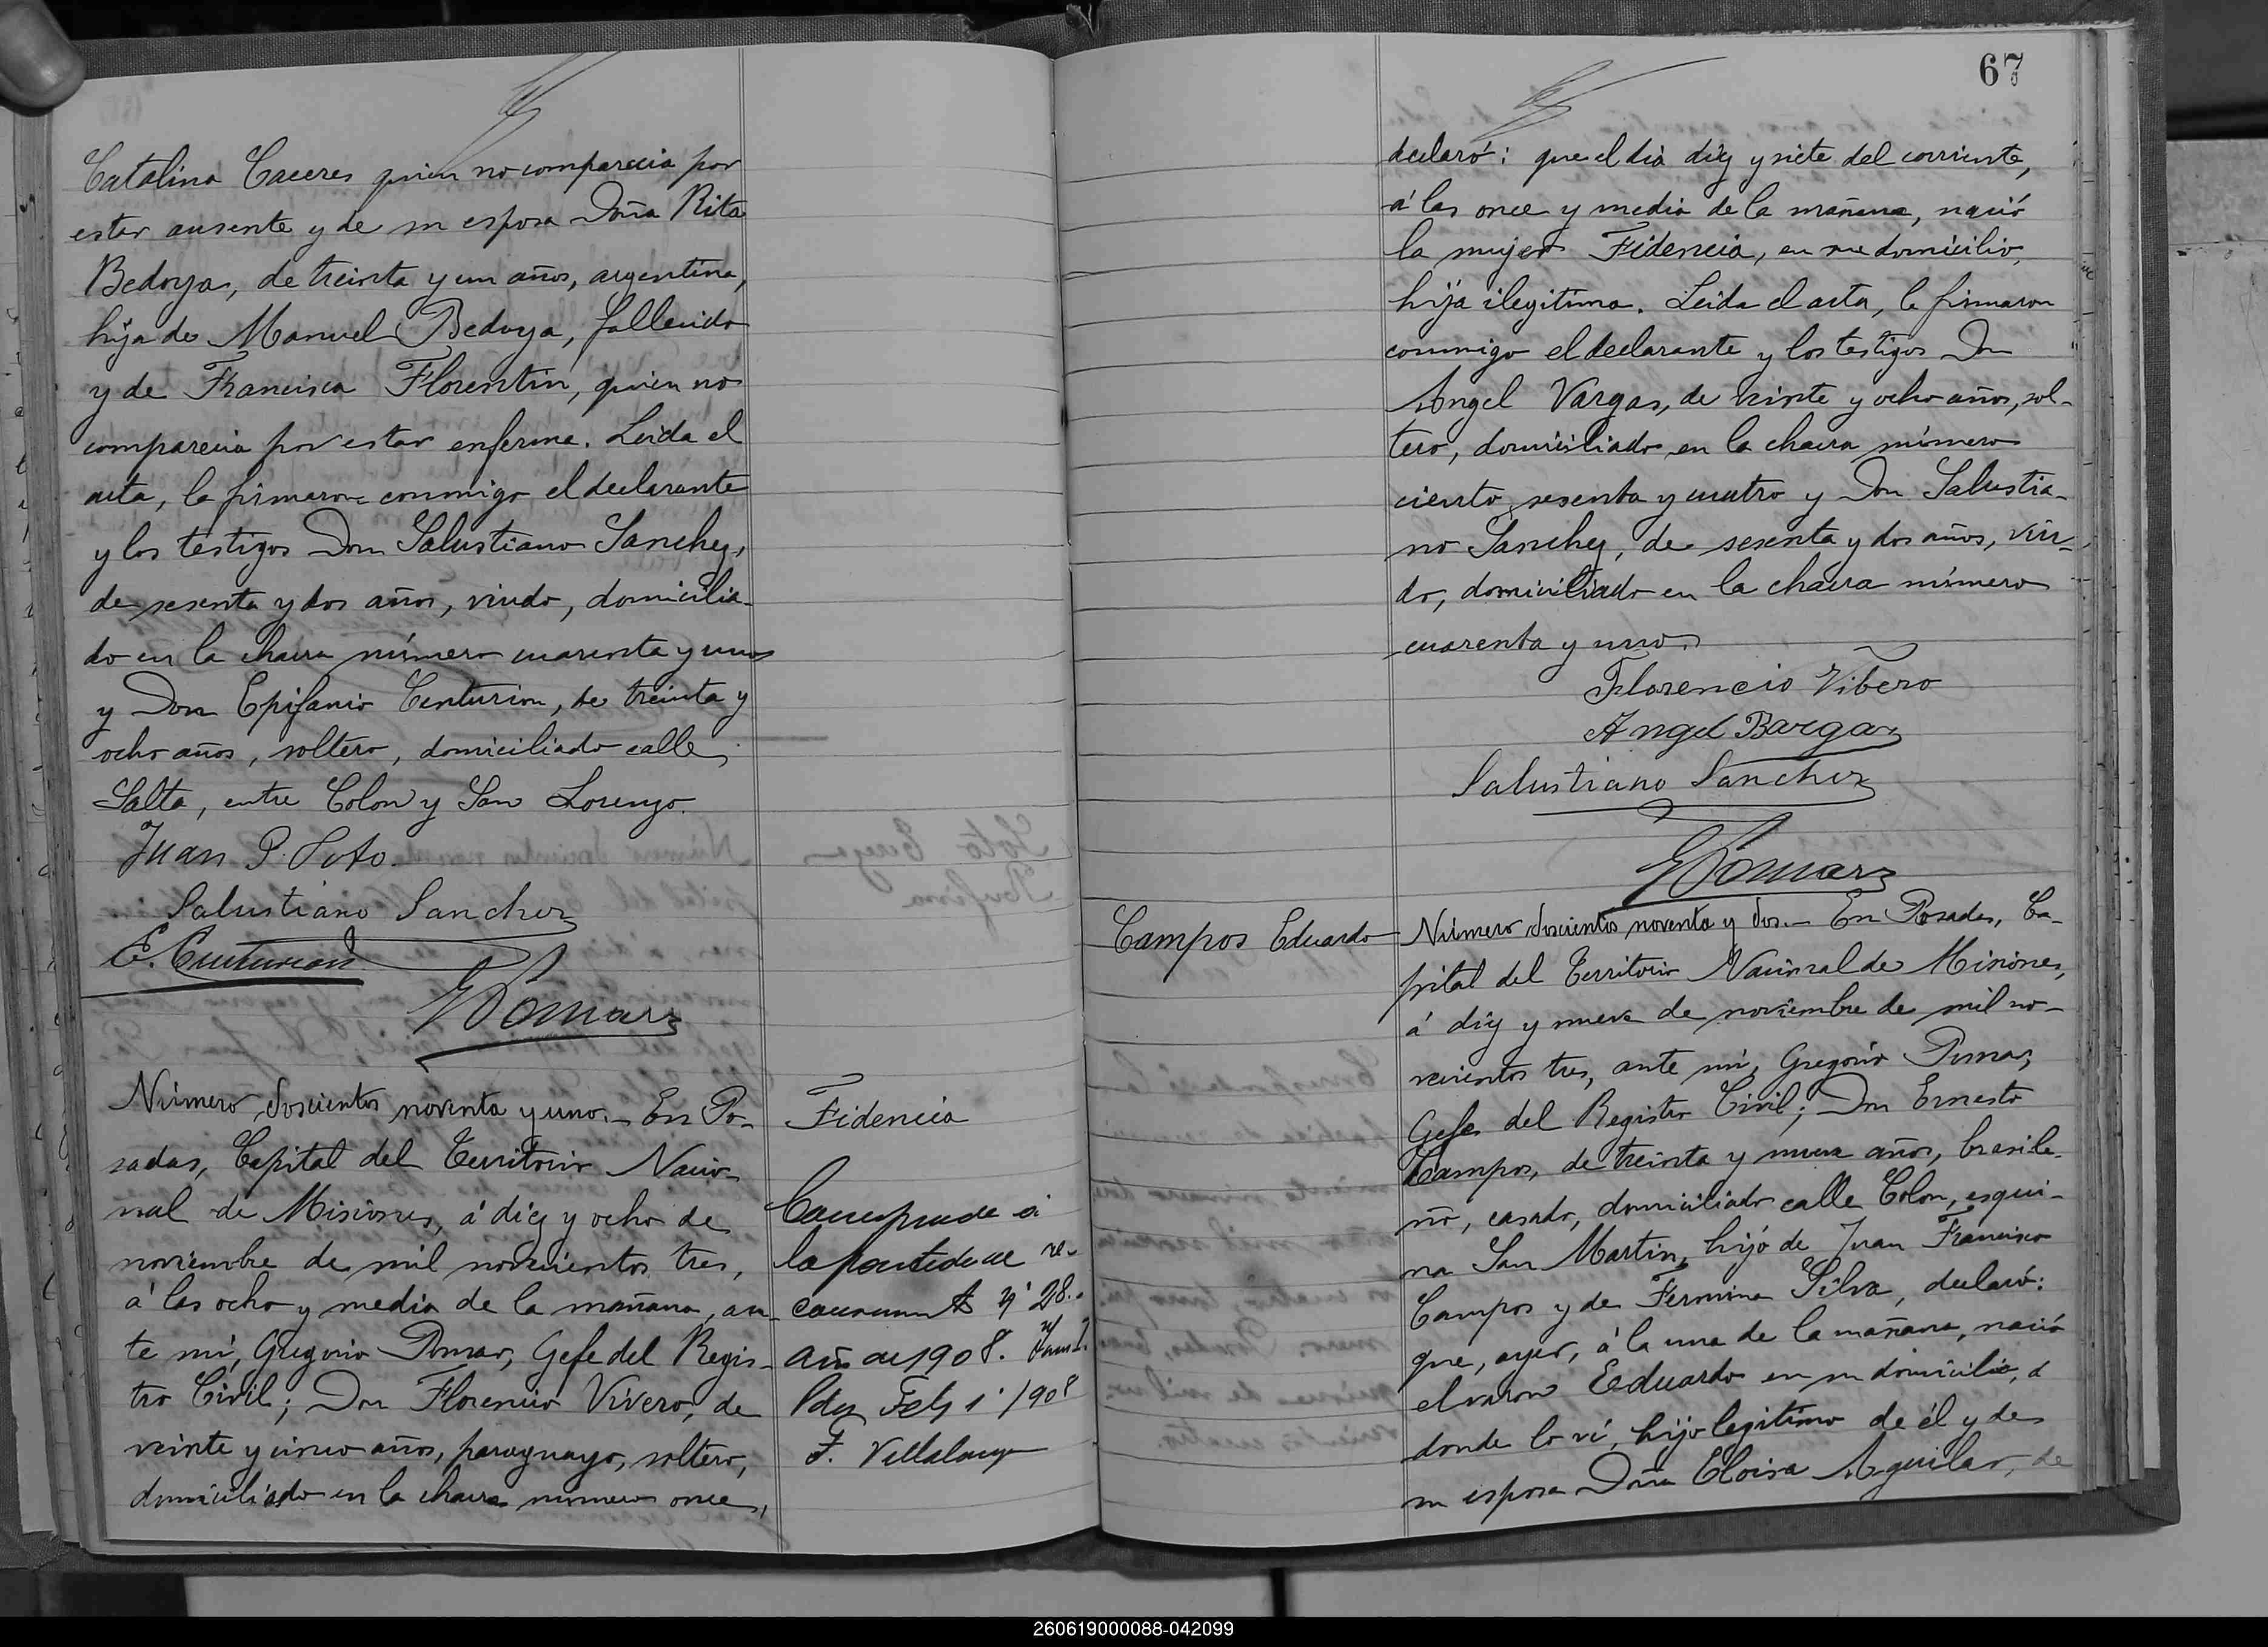 Catalina Caceres quien no comparecia por
estar ausente y de su esposa Doña Rita
Bedoya, de treinta y un años, argentina,
hija de Manuel Bedoya, fallecido
y de Francisca Florentin, quien no
comparecia por estar enferma. Leida el
acta, la firmaron conmigo el declarante
y los testigos Don Salustiano Sanchez,
de sesenta y dos años, viudo, domicilia-
do en la chacra número cuarenta y uno
y Don Epifanio Centurion, de treinta y
ocho años, soltero, domiciliado calle
Salta, entre Colon y San Lorenzo.
Juan P. Soto.
Salustiano Sanchez
E. Centurion
GPomar
Número doscientos noventa y uno. - En Po-
sadas, Capital del Territorio Nacio-
nal de Misiones, á diez y ocho de
noviembre de mil novecientos tres,
á las ocho y media de la mañana, an-
te mi, Gregorio Pomar, Gefe del Regis-
tro Civil; Don Florencio Vivero, de
veinte y cinco años, paraguayo, soltero,
domiciliado en la chacra número once,
Fidencia
Corresponde á
la partida de re-
Nº 28.
año de 1908.
Pdas Feb 1 1908
F. Villalonga
67
declaró: que el dia diez y siete del corriente,
á las once y media de la mañana, nació
la mujer Fidencia, en su domicilio,
hija ilegitima. Leida el acta, la firmaron
conmigo el declarante y los testigos Don
Angel Vargas, de veinte y ocho años, sol-
tero, domiciliado en la chacra número
ciento sesenta y cuatro y Don Salustia-
no Sanchez, de sesenta y dos años, viu-
do, domiciliado en la chacra número
cuarenta y uno.
Florencio Vibero
Angel Bargas
Salustiano Sanchez
GPomar
Campos Eduardo
Número doscientos noventa y dos. - En Posadas, Ca-
pital del Territorio Nacional de Misiones,
á diez y nueve de noviembre de mil no-
vecientos tres, ante mi, Gregorio Pomar,
Gefe del Registro Civil; Don Ernesto
Campos, de treinta y nueve años, brasile-
ño, casado, domiciliado calle Colon, esqui-
na San Martin, hijo de Juan Francisco
Campos y de Fermina Silva, declaró:
que, ayer, á la una de la mañana, nació
el varon Eduardo en su domicilio, á
donde lo ví, hijo legitimo de él y de
su esposa Doña Eloisa Aguilar, de
260619000088-042099